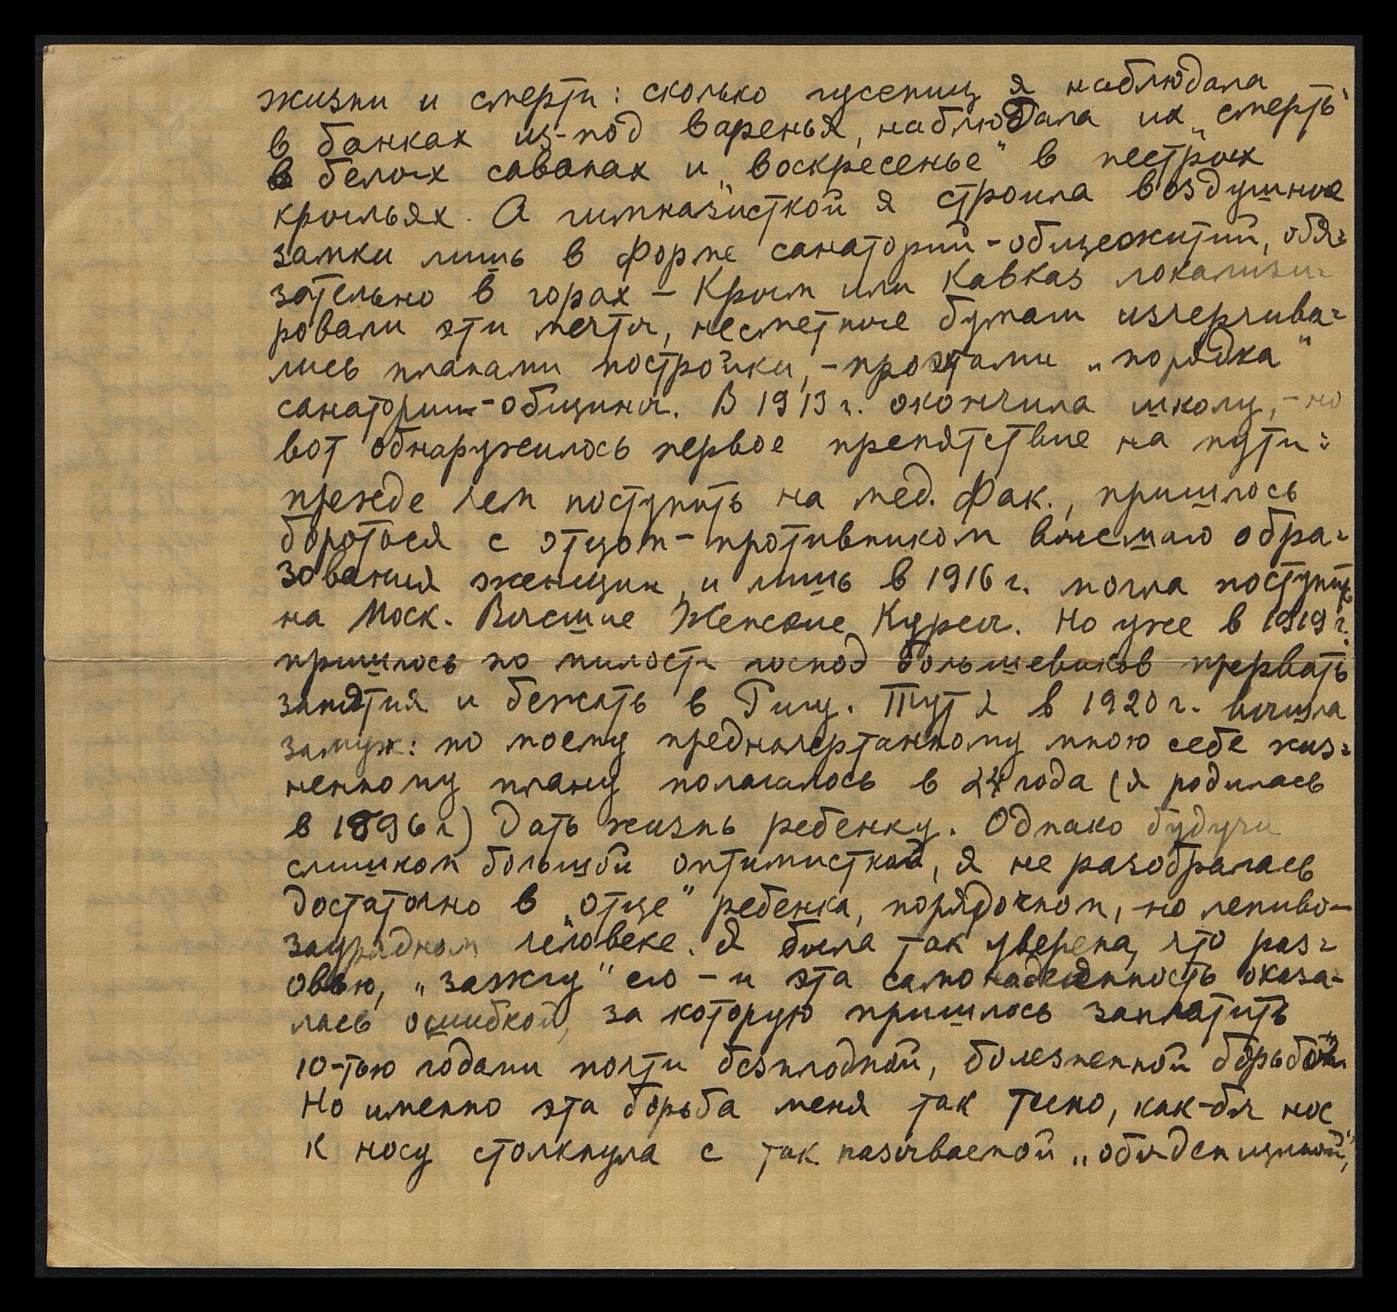 жизни и смерти: сколько гусениц я наблюдала
в банках из-под варенья, наблюдала их „смерть"
в белых саванах и „воскресенье" в пестрых
крыльях. А гимназисткой я строила воздушные
замки лишь в форме санаторий-общежитий, обя-
зательно в горах – Крым или Кавказ локализи-
ровали эти мечты, несметные бумаги исчерчива-
лись планами постройки, – проэктами „порядка"
санатории-общины. В 1913 г. окончила школу, – но
вот обнаружилось первое препятствие на пути:
прежде чем поступить на мед. фак., пришлось
бороться с отцом – противником высшаго обра-
зования женщин, и лишь в 1916 г. могла поступить
на Моск. Высшие Женские Курсы. Но уже в 1919 г.
пришлось по милости господ большевиков прервать
занятия и бежать в Ригу. Тут я в 1920 г. вышла
замуж: по моему предначертанному мною себе жиз-
ненному плану полагалось в 24 года (я родилась
в 1896 г) дать жизнь ребенку. Однако будучи
слишком большой оптимисткой, я не разобралась
достаточно в „отце" ребенка, порядочном, – но лениво-
заурядном человеке. Я была так уверена, что раз-
овью, „зажгу" его – и эта самонадеянность оказа-
лась ошибкой, за которую пришлось заплатить
10-тью годами почти безплодной, болезненной борьбой.
Но именно эта борьба меня так тесно, как-бы нос
к носу столкнула с так называемой „обыденщиной",